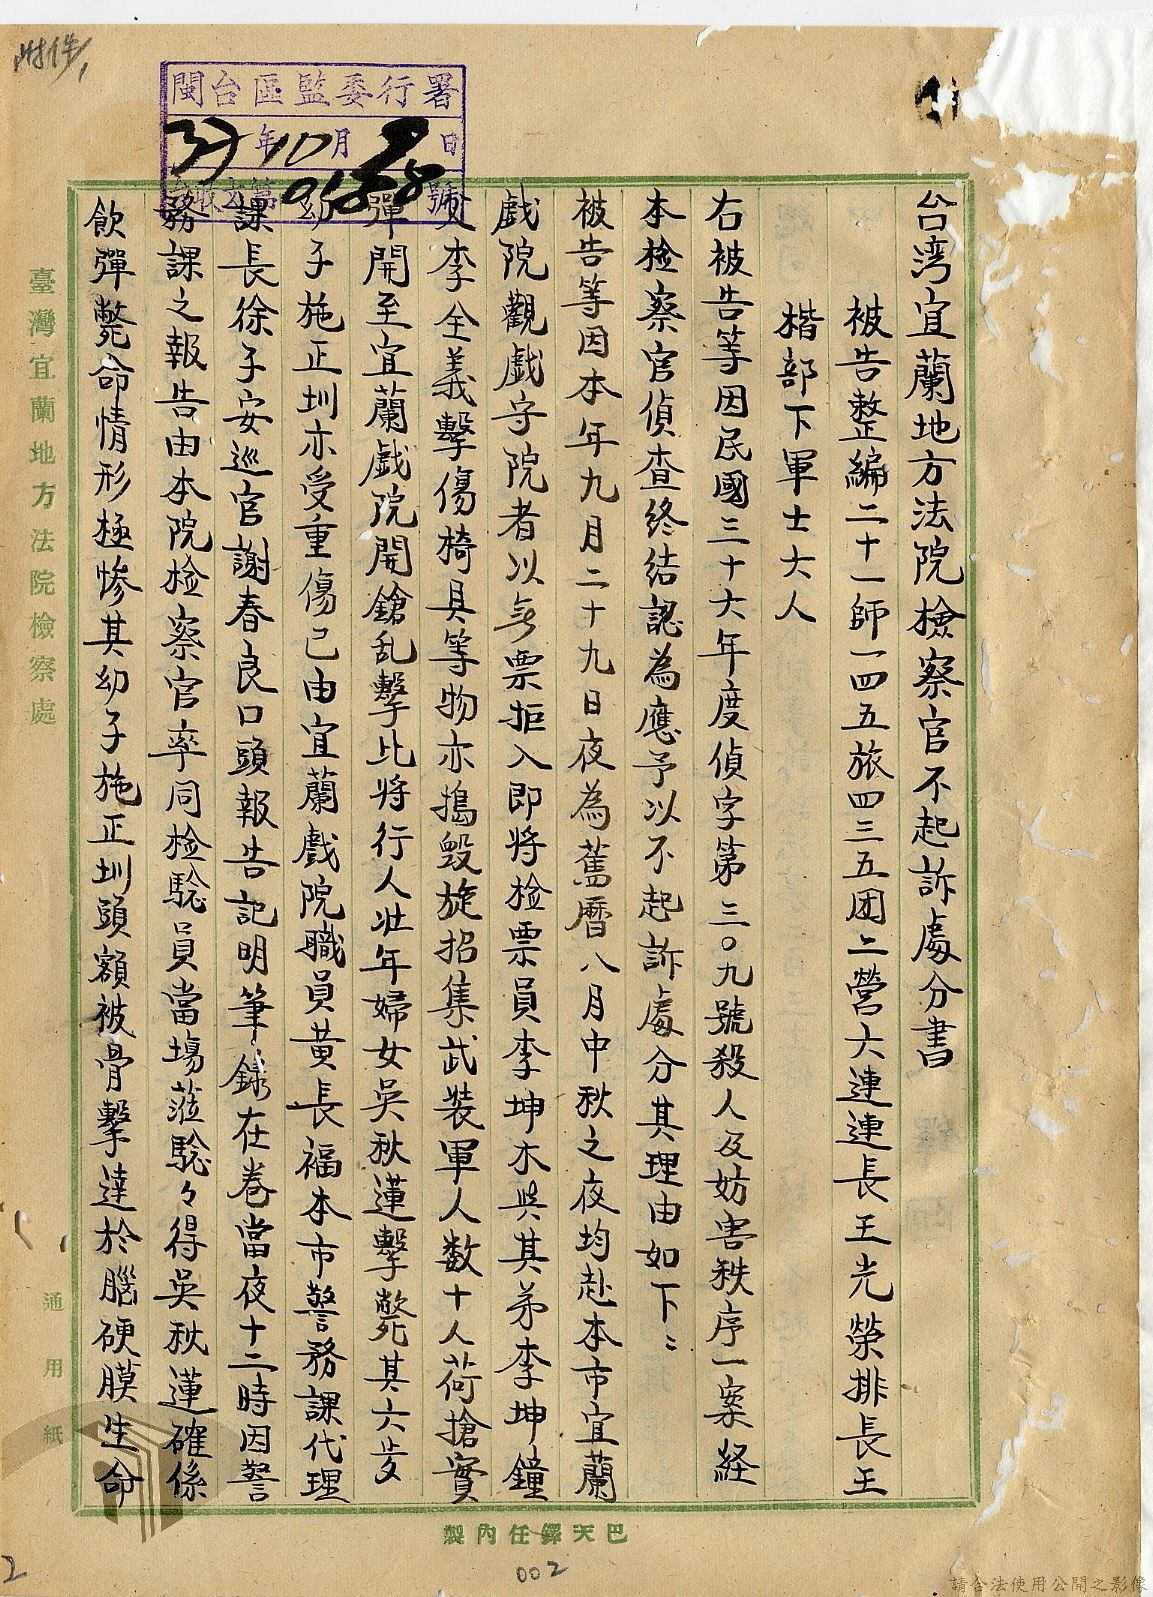 附件1
閩台區監委行署
37年10月2日
收文第0188號
台湾宜蘭地方法院檢察官不起訴處分書
被告整編二十一師一四五旅四三五团二營六連連長王光榮排長王
楷部下軍士六人
右被告等因民國三十六年度偵字第三〇九號殺人及妨害秩序一案経
本檢察官偵查終结認為應予以不起訴處分其理由如下：
被告等因本年九月二十九日夜為舊曆八月中秋之夜均赴本市宜蘭
戲院觀戲守院者以無票拒入即将检票員李坤木與其弟李坤鐘
父李全義擊傷椅具等物亦搗毀旋招集武裝軍人数十人荷搶實
彈開至宜蘭戲院開鎗乱擊比将行人壮年婦女吳秋蓮擊斃其六歩
幼子施正圳亦受重傷已由宜蘭戲院職員黃長福本市警務課代理
課長徐子安巡官謝春良口頭報告記明筆録在卷當夜十二時因警
務課之報告由本院检察官率同检驗員當場蒞驗々得吳秋蓮確係
飲彈斃命情形極惨其幼子施正圳頭額被骨擊達於腦硬膜生命
臺灣宜蘭地方法院檢察處
通用紙
巴天鐸任內製
002
2
請合法使用公開之影像